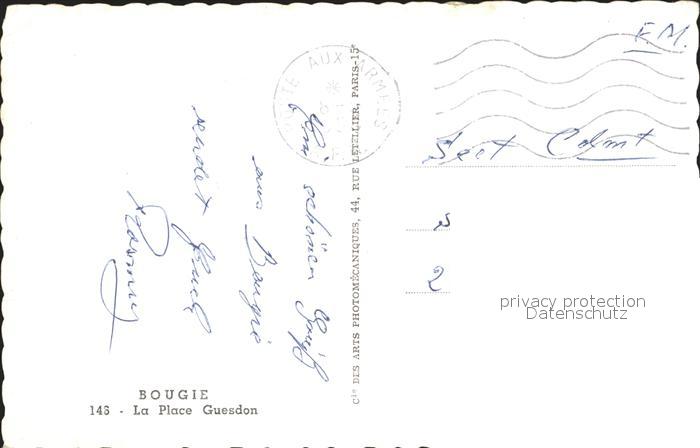 F.M.
POSTE AUX ARMÉES
Ein schönen Gruß
aus Bougie
sendet Euch
Cie DES ARTS PHOTOMÉCANIQUES, 44, RUE LETELLIER, PARIS-15e
Sect
2
privacy protection
Datenschutz
BOUGIE
146 - La Place Guesdon